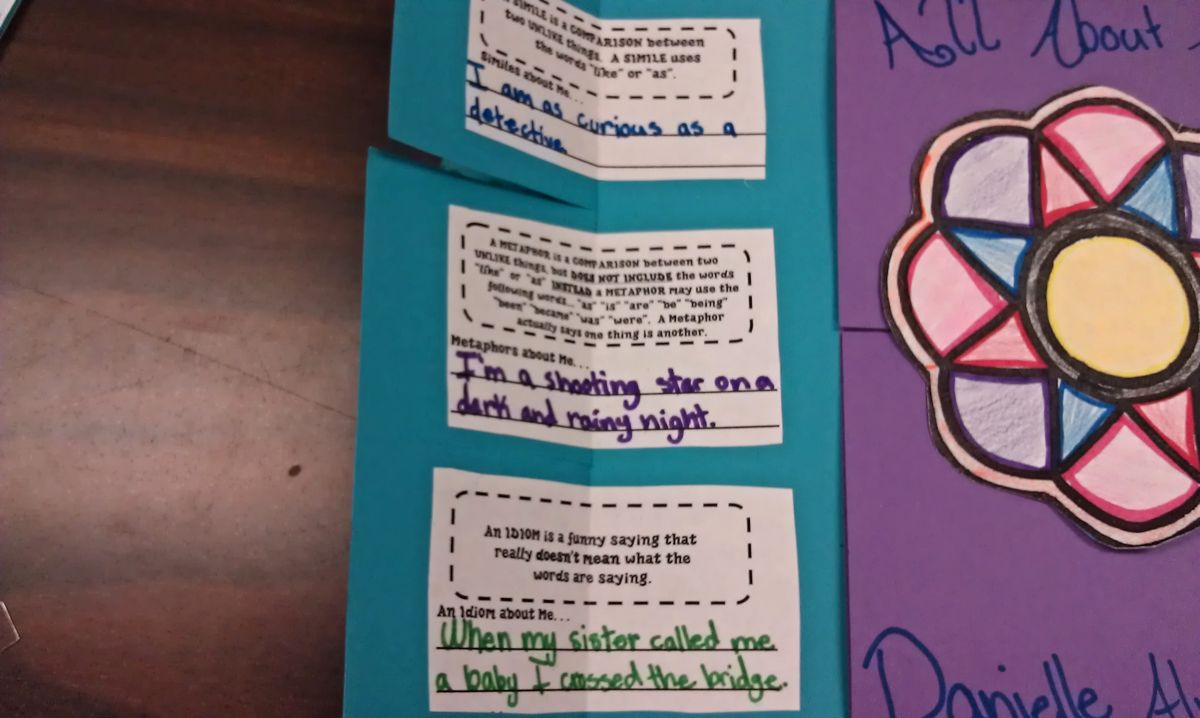 A SIMILE is a COMPARISON between
two UNLIKE things. A SIMILE uses
the words "like" or "as".
Similes about Me...
I am as curious as a
detective.
A METAPHOR is a COMPARISON between two
UNLIKE things, but DOES NOT INCLUDE the words
"like" or "as" INSTEAD a METAPHOR may use the
following words... "as" "is" "are" "be" "being"
"been" "became" "was" "were". A Metaphor
actually says one thing is another.
Metaphors about Me...
I'm a shooting star on a
dark and rainy night.
An IDIOM is a funny saying that
really doesn't mean what the
words are saying.
An Idiom about Me...
When my sister called me
a baby I crossed the bridge.
All About
Danielle